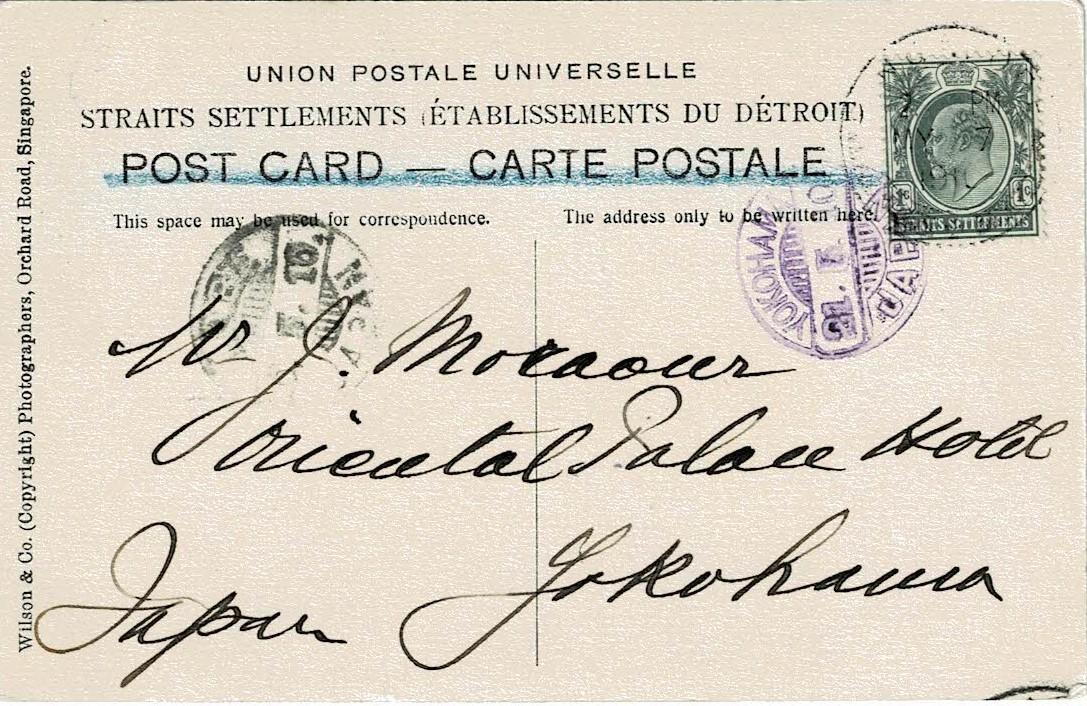 UNION POSTALE UNIVERSELLE
STRAITS SETTLEMENTS (ÉTABLISSEMENTS DU DÉTROIT)
POST CARD — CARTE POSTALE
This space may be used for correspondence.
The address only to be written here.
Wilson & Co. (Copyright) Photographers, Orchard Road, Singapore.
1c 1c
STRAITS SETTLEMENTS
PM
MY 7
YOKOHAMA
21. 5. 10
JAPAN
Mr J.
Oriental Palace Hotel
Yokohama
Japan